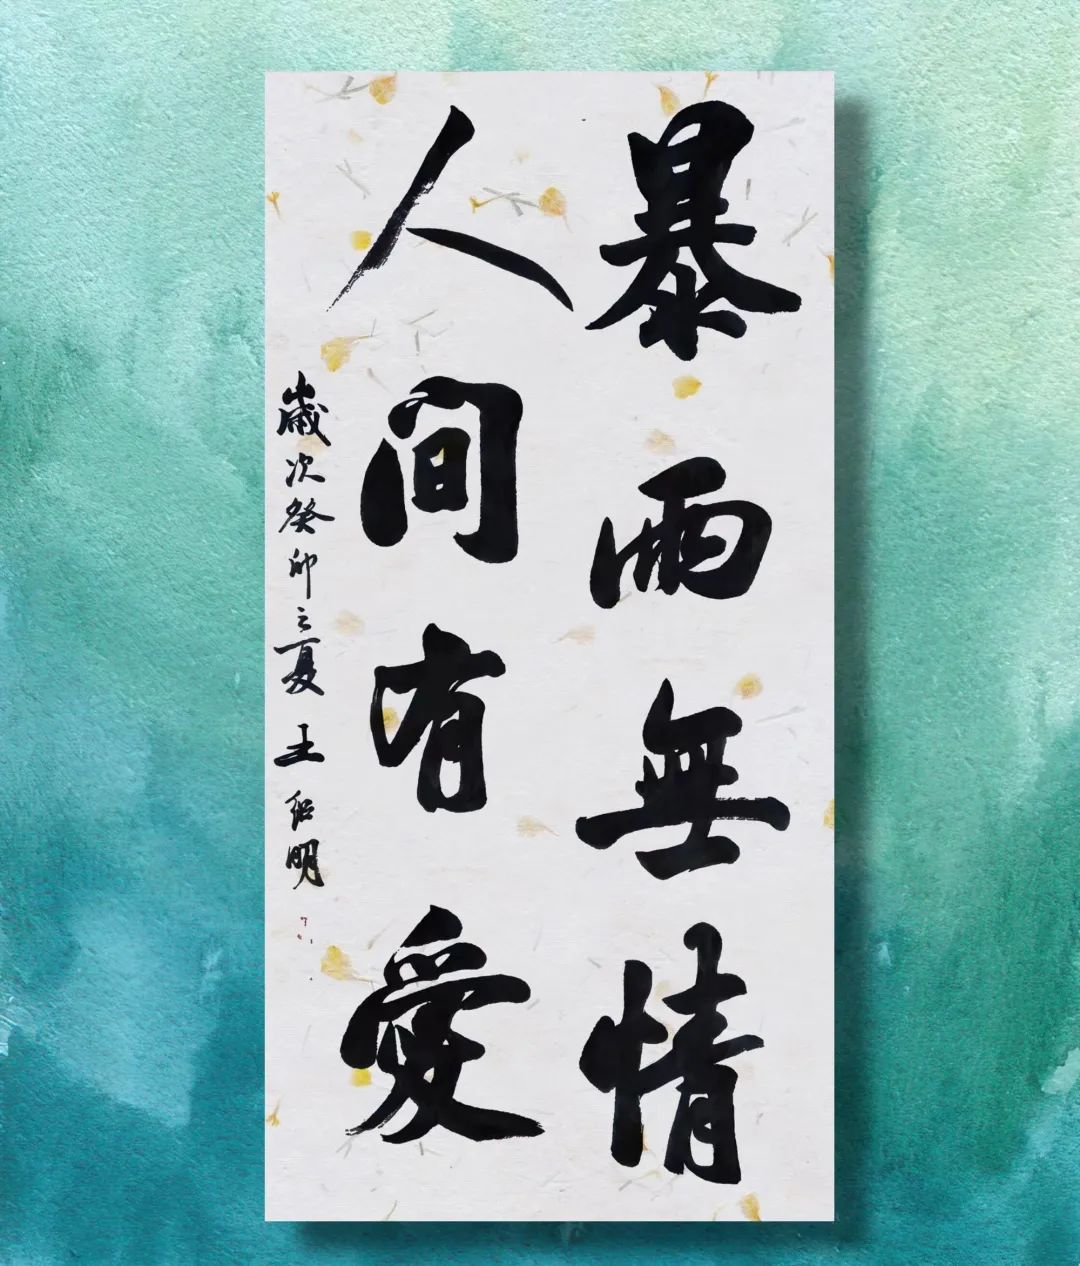 暴雨無情
人間有愛
歲次癸卯之夏 王紹明